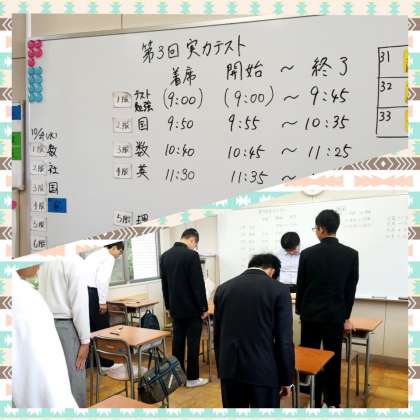 第3回 実力テスト
着席 開始 ～ 終了
1限 テスト勉強 (9:00) (9:00) ～ 9:45
2限 国 9:50 9:55 ～ 10:35
3限 数 10:40 10:45 ～ 11:25
4限 英 11:30 11:35 ～
5限 理
(水)
1限 数
2限 社
3限 国
4限
5限
6限
31
32
33